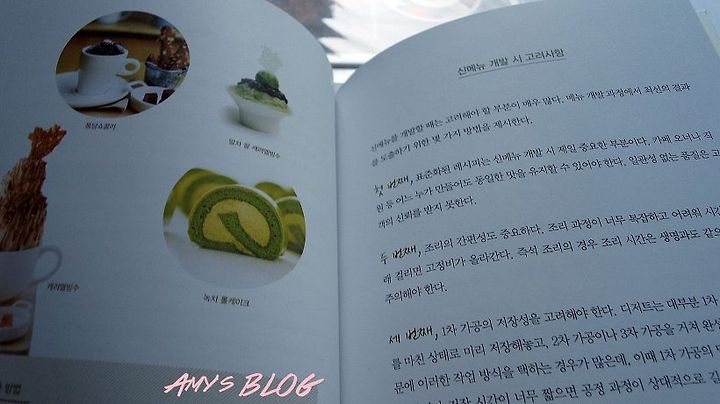 퐁당쇼콜라
말차 팥 캐러멜빙수
캐러멜빙수
녹차 롤케이크
방법
AMY'S BLOG
신메뉴 개발 시 고려사항
신메뉴를 개발할 때는 고려해야 할 부분이 매우 많다. 메뉴 개발 과정에서 최선의 결과
을 도출하기 위한 몇 가지 방법을 제시한다.
첫 번째, 표준화된 레시피는 신메뉴 개발 시 제일 중요한 부분이다. 카페 오너나 직
원 등 어느 누가 만들어도 동일한 맛을 유지할 수 있어야 한다. 일관성 없는 품질은 고
객의 신뢰를 받지 못한다.
두 번째, 조리의 간편성도 중요하다. 조리 과정이 너무 복잡하고 어려워 시간
래 걸리면 고정비가 올라간다. 즉석 조리의 경우 조리 시간은 생명과도 같으
주의해야 한다.
세 번째, 1차 가공의 저장성을 고려해야 한다. 디저트는 대부분 1차
를 마친 상태로 미리 저장해놓고, 2차 가공이나 3차 가공을 거쳐 완성
문에 이러한 작업 방식을 택하는 경우가 많은데, 이때 1차 가공의
저장 시간이 너무 짧으면 공정 과정이 상대적으로 길